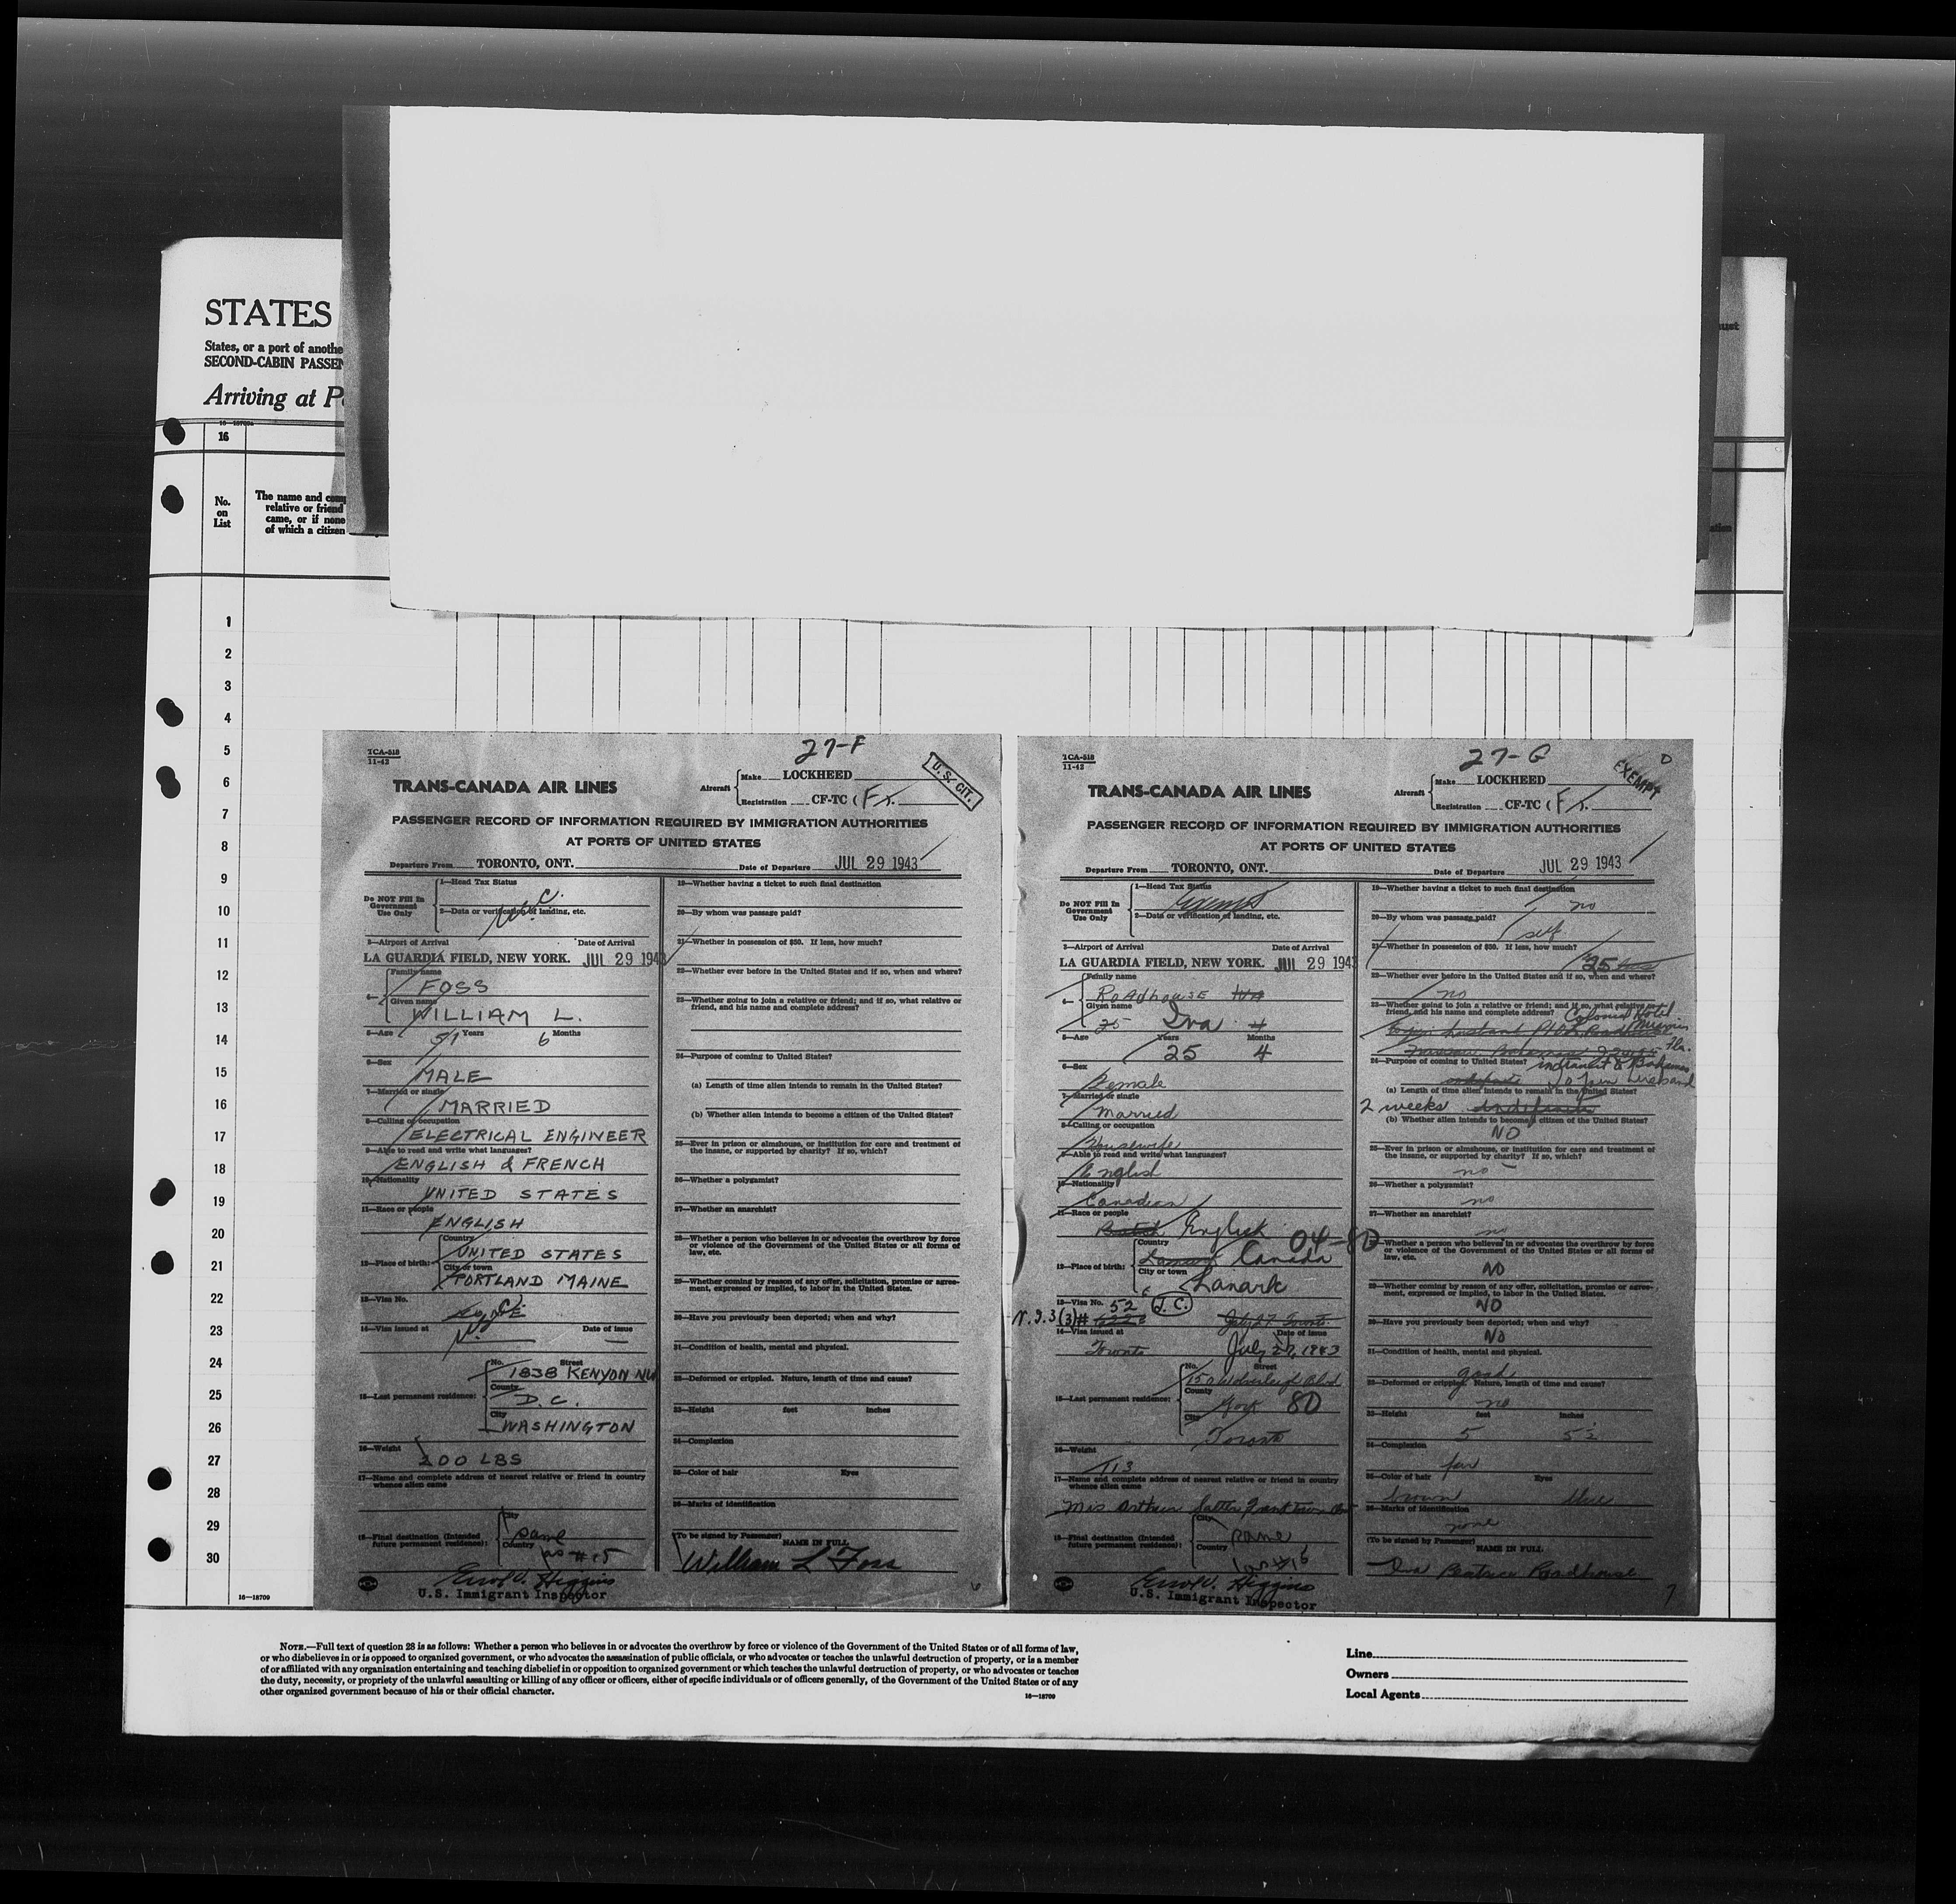 STATES
States, or a port of anothe
SECOND-CABIN PASSEN
Arriving at P
16
No.
on
List
The name and com
relative or friend
came, or if none
of which a citizen
1
2
3
4
5
6
7
8
9
10
11
12
13
14
15
16
17
18
19
20
21
22
23
24
25
26
27
28
29
30
16—18709
TCA-518
11-42
27-F
TRANS-CANADA AIR LINES
Aircraft
Make LOCKHEED
Registration CF-TC (F).
U. S. CIT.
PASSENGER RECORD OF INFORMATION REQUIRED BY IMMIGRATION AUTHORITIES
AT PORTS OF UNITED STATES
Departure From TORONTO, ONT. Date of Departure JUL 29 1943
Do NOT Fill In
Government
Use Only
1—Head Tax Status
2—Data or verification of landing, etc.
3—Airport of Arrival Date of Arrival
LA GUARDIA FIELD, NEW YORK. JUL 29 1943
4—
Family name
FOSS
Given name
WILLIAM L.
5—Age Years Months
51 6
6—Sex
MALE
7—Married or single
MARRIED
8—Calling or occupation
ELECTRICAL ENGINEER
9—Able to read and write what languages?
ENGLISH & FRENCH
10—Nationality
UNITED STATES
11—Race or people
ENGLISH
12—Place of birth:
Country
UNITED STATES
City or town
PORTLAND MAINE
13—Visa No.
14—Visa issued at Date of issue
15—Last permanent residence:
No. Street
1838 KENYON NW
County
D.C.
City
WASHINGTON
16—Weight
200 LBS
17—Name and complete address of nearest relative or friend in country
whence alien came
18—Final destination (Intended
future permanent residence):
City
same
Country
as #15
Errol V. Higgins
U.S. Immigrant Inspector
19—Whether having a ticket to such final destination
20—By whom was passage paid?
21—Whether in possession of $50. If less, how much?
22—Whether ever before in the United States and if so, when and where?
23—Whether going to join a relative or friend; and if so, what relative or
friend, and his name and complete address?
24—Purpose of coming to United States?
(a) Length of time alien intends to remain in the United States?
(b) Whether alien intends to become a citizen of the United States?
25—Ever in prison or almshouse, or institution for care and treatment of
the insane, or supported by charity? If so, which?
26—Whether a polygamist?
27—Whether an anarchist?
28—Whether a person who believes in or advocates the overthrow by force
or violence of the Government of the United States or all forms of
law, etc.
29—Whether coming by reason of any offer, solicitation, promise or agree-
ment, expressed or implied, to labor in the United States.
30—Have you previously been deported; when and why?
31—Condition of health, mental and physical.
32—Deformed or crippled. Nature, length of time and cause?
33—Height feet inches
34—Complexion
35—Color of hair Eyes
36—Marks of identification
(To be signed by Passenger) NAME IN FULL
William L Foss
6
TCA-518
11-42
27-G
TRANS-CANADA AIR LINES
Aircraft
Make LOCKHEED
Registration CF-TC (F).
EXEMPT
PASSENGER RECORD OF INFORMATION REQUIRED BY IMMIGRATION AUTHORITIES
AT PORTS OF UNITED STATES
Departure From TORONTO, ONT. Date of Departure JUL 29 1943
Do NOT Fill In
Government
Use Only
1—Head Tax Status
Exempt
2—Data or verification of landing, etc.
3—Airport of Arrival Date of Arrival
LA GUARDIA FIELD, NEW YORK. JUL 29 1943
4—
Family name
Roadhouse Iva
Given name
25 Iva 4
5—Age Years Months
25 4
6—Sex
Female
7—Married or single
Married
8—Calling or occupation
Housewife
9—Able to read and write what languages?
English
10—Nationality
Canadian
11—Race or people
English 04-80
12—Place of birth:
Country
Lanark Canada
City or town
Lanark
13—Visa No. 52 T.C.
14—Visa issued at Date of issue
Toronto July 27, 1943
15—Last permanent residence:
No. Street
County
York 80
City
Toronto
16—Weight
113
17—Name and complete address of nearest relative or friend in country
whence alien came
18—Final destination (Intended
future permanent residence):
City
same
Country
as #15
Errol V. Higgins
U.S. Immigrant Inspector
19—Whether having a ticket to such final destination
no
20—By whom was passage paid?
self
21—Whether in possession of $50. If less, how much?
25
22—Whether ever before in the United States and if so, when and where?
no
23—Whether going to join a relative or friend; and if so, what relative or
friend, and his name and complete address? Colonial Hotel
Miami
Fla.
24—Purpose of coming to United States? in transit to Bahamas
to join husband
(a) Length of time alien intends to remain in the United States?
2 weeks Indefinite
(b) Whether alien intends to become a citizen of the United States?
NO
25—Ever in prison or almshouse, or institution for care and treatment of
the insane, or supported by charity? If so, which?
no
26—Whether a polygamist?
no
27—Whether an anarchist?
no
28—Whether a person who believes in or advocates the overthrow by force
or violence of the Government of the United States or all forms of
law, etc.
NO
29—Whether coming by reason of any offer, solicitation, promise or agree-
ment, expressed or implied, to labor in the United States.
NO
30—Have you previously been deported; when and why?
No
31—Condition of health, mental and physical.
good
32—Deformed or crippled. Nature, length of time and cause?
no
33—Height feet inches
5 5½
34—Complexion
fair
35—Color of hair Eyes
brown blue
36—Marks of identification
none
(To be signed by Passenger) NAME IN FULL
Iva Beatrice Roadhouse
7
NOTE.—Full text of question 28 is as follows: Whether a person who believes in or advocates the overthrow by force or violence of the Government of the United States or of all forms of law,
or who disbelieves in or is opposed to organized government, or who advocates the assassination of public officials, or who advocates or teaches the unlawful destruction of property, or is a member
of or affiliated with any organization entertaining and teaching disbelief in or opposition to organized government or which teaches the unlawful destruction of property, or who advocates or teaches
the duty, necessity, or propriety of the unlawful assaulting or killing of any officer or officers, either of specific individuals or of officers generally, of the Government of the United States or of any
other organized government because of his or their official character.
16—18709
Line
Owners
Local Agents